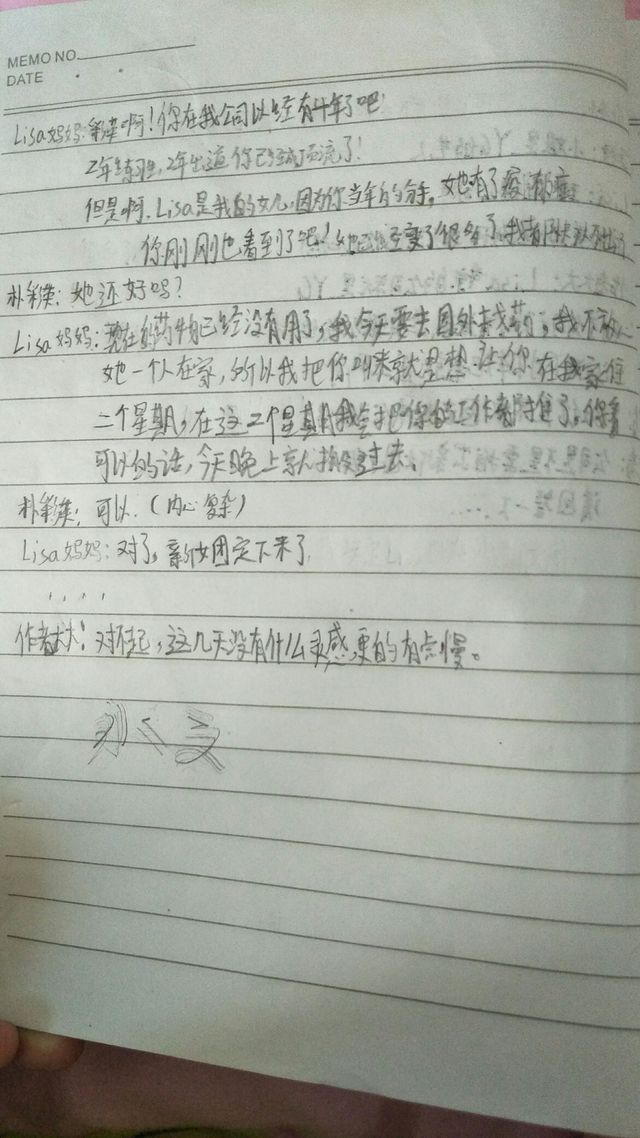 MEMO NO.
DATE
Lisa妈妈:彩英啊!你在我公司以经有4年了吧
2年练习生,2年出道你已经成顶流了!
但是啊.Lisa是我的女儿,因为你当年的分手,她有了
你刚刚也看到了吧!她已经变了很多了,我都快认不出
朴彩英:她还好吗?
Lisa妈妈:现在的药物已经没有用了,我今天要去国外找药,我不放心
她一个人在家,所以我把你叫来就是想让你在我家住
二个星期,在这二个星期我会把你的工作都推了,你看
可以的话,今天晚上就搬过去。
朴彩英:可以.(内心复杂)
Lisa妈妈:对了,新女团定下来了
....
作者大大:对不起,这几天没有什么灵感,更的有点慢。